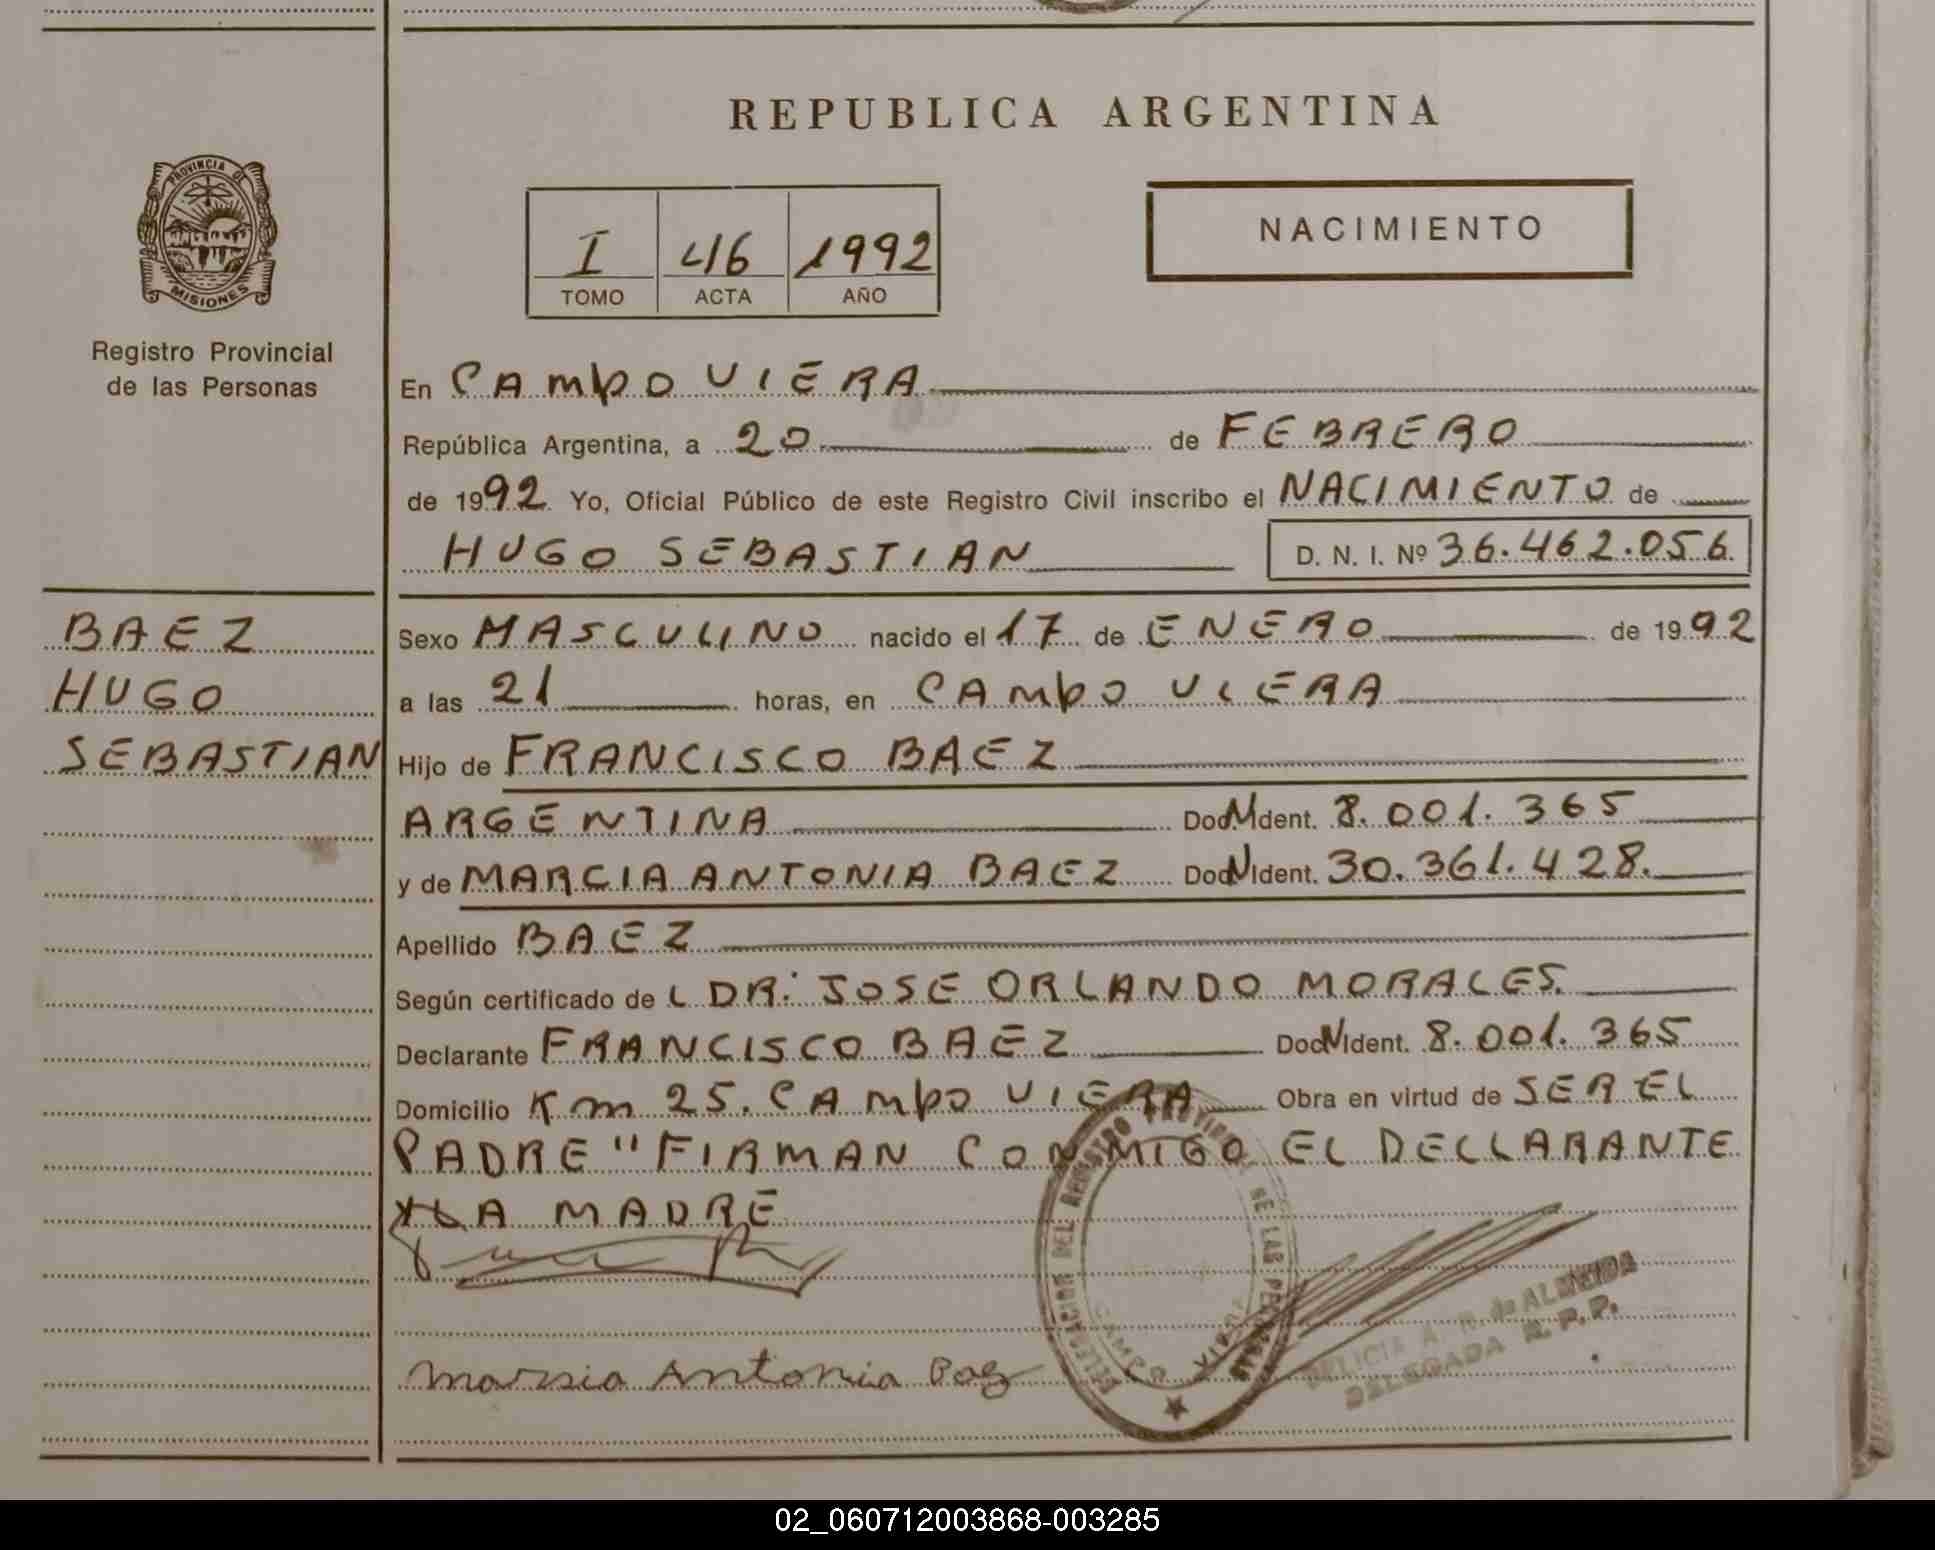 REPUBLICA ARGENTINA
PROVINCIA DE
MISIONES
Registro Provincial
de las Personas
I 46 1992
TOMO ACTA AÑO
NACIMIENTO
En CAMPO VIERA
República Argentina, a 20 de FEBRERO
de 1992. Yo, Oficial Público de este Registro Civil inscribo el NACIMIENTO de
HUGO SEBASTIAN D. N. I. Nº 36.462.056.
BAEZ
HUGO
SEBASTIAN
Sexo MASCULINO nacido el 17 de ENERO de 1992
a las 21 horas, en CAMPO VIERA
Hijo de FRANCISCO BAEZ
ARGENTINA Doc. Ident. 8.001.365
y de MARCIA ANTONIA BAEZ Doc. Ident. 30.361.428.
Apellido BAEZ
Según certificado de L DR. JOSE ORLANDO MORALES.
Declarante FRANCISCO BAEZ Doc. Ident. 8.001.365
Domicilio Km 25. CAMPO VIERA Obra en virtud de SER EL
PADRE " FIRMAN CONMIGO EL DECLARANTE
Y LA MADRE
Marsia Antonia
DELEGACION DEL REGISTRO PROVINCIAL DE LAS PERSONAS
CAMPO VIERA
DELICIA A. R. de ALMEIDA
DELEGADA R. P. P.
02_060712003868-003285